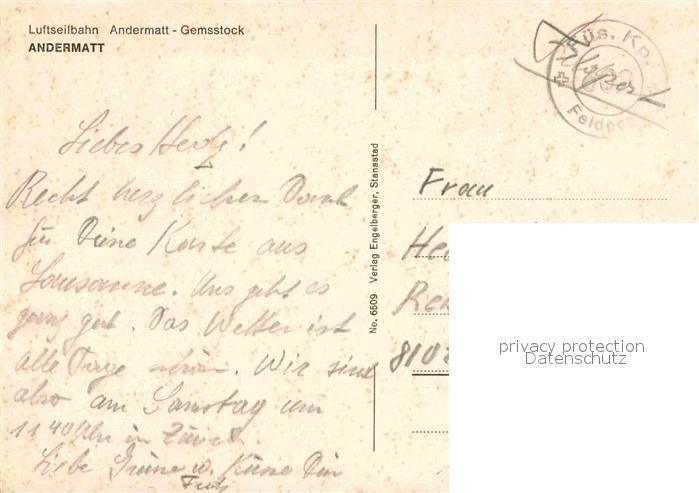 Luftseilbahn Andermatt - Gemsstock
ANDERMATT
Füs. Kp.
Feldpost
Liebes Hedy!
Recht herzlichen Dank
für Deine Karte aus
Lausanne. Uns geht es
ganz gut. Das Wetter ist
alle Tage schön. Wir sind
also am Samstag um
1140 Uhr in Zürich.
Liebe Grüsse u. Küsse Dein
No. 6509 Verlag Engelberger, Stansstad
Frau
He
Re
810
privacy protection
Datenschutz